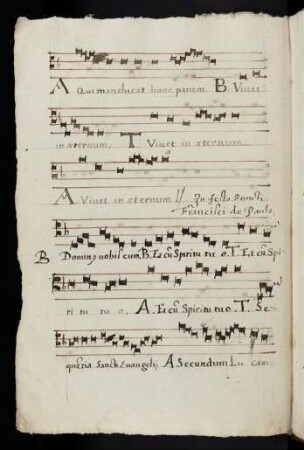 A Qui manducat hunc panem. B. Vivet
in æternum, T. Vivet in æternum
A Vivet in æternum // In festo Sancti
Francisci de Paulo
B Dominus vobiscum, B. Et cũ Spiritu tu o. T. Et cũ Spi
ri tu tu o. A. Et cũ Spiritu tuo. T. Se
quẽtia Sancti Evangelij A Secundum Lu cam